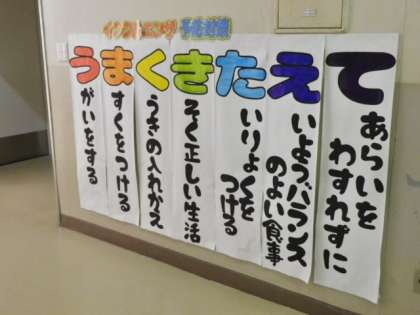 インフルエンザ 予防対策
うまくきたえて
がいをする
すくをつける
うきの入れかえ
そく正しい生活
いりょくを
つける
いようバランス
のよい食事
あらいを
わすれずに